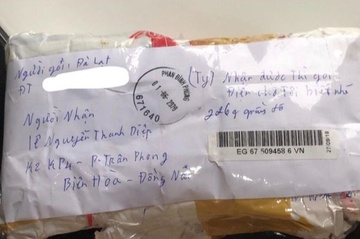 Người gửi: Đà Lạt
ĐT
(Tý) Nhận được thì gọi
Điện cho tôi biết nhé
PHAN ĐÌNH PHÙNG
671640
Người Nhận
Lê Nguyễn Thanh Diệp
K2 KP4 - P-Trần Phong
Biên Hòa - Đồng Nai
EG 67 509458 6 VN